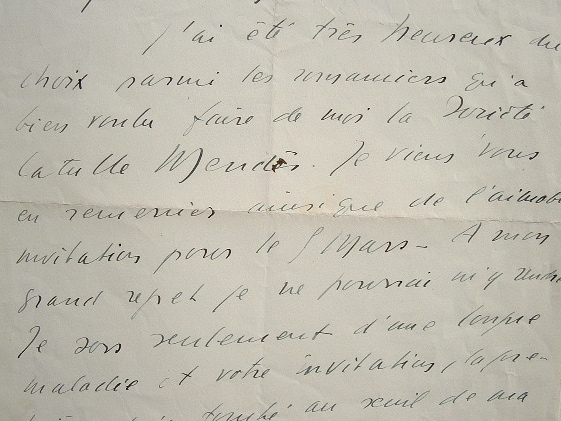 J'ai été très heureux du
choix parmi les romanciers qu'a
bien voulu faire de moi la Société
Catulle Mendès. Je viens vous
en remercier ainsi que de l'aimab
invitation pour le 5 Mars - A mon
grand regret je ne pourrai m'y rendre
Je sors seulement d'une longue
maladie et votre invitation, la pre-
tombé au seuil de ma